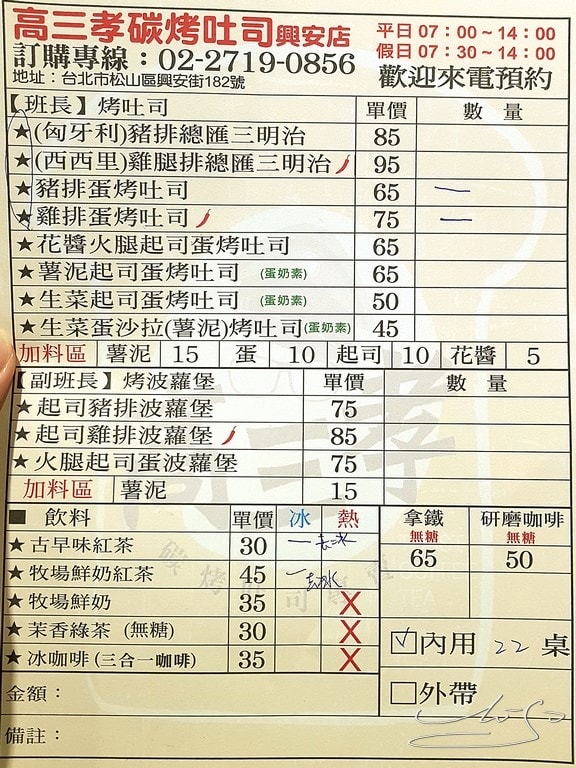 高三孝碳烤吐司興安店
平日07：00~14：00
訂購專線：02-2719-0856
假日07：30~14：00
地址：台北市松山區興安街182號
歡迎來電預約
【班長】烤吐司 單價 數量
★(匈牙利)豬排總匯三明治 85
★(西西里)雞腿排總匯三明治 95
★豬排蛋烤吐司 65 一
★雞排蛋烤吐司 75 二
★花醬火腿起司蛋烤吐司 65
★薯泥起司蛋烤吐司 (蛋奶素) 65
★生菜起司蛋烤吐司 (蛋奶素) 50
★生菜蛋沙拉(薯泥)烤吐司(蛋奶素) 45
加料區 薯泥 15 蛋 10 起司 10 花醬 5
【副班長】烤波蘿堡 單價 數量
★起司豬排波蘿堡 75
★起司雞排波蘿堡 85
★火腿起司蛋波蘿堡 75
加料區 薯泥 15
■ 飲料 單價 冰 熱
★古早味紅茶 30 一去冰
★牧場鮮奶紅茶 45 一去冰
★牧場鮮奶 35 X
★茉香綠茶 (無糖) 30 X
★冰咖啡(三合一咖啡) 35 X
拿鐵 研磨咖啡
無糖 無糖
65 50
☑內用 22 桌
□外帶
金額：
備註：